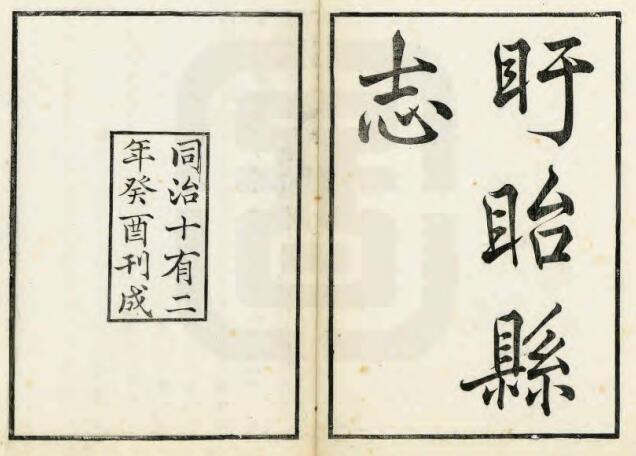 盱眙縣
志
同治十有二
年癸酉刊成